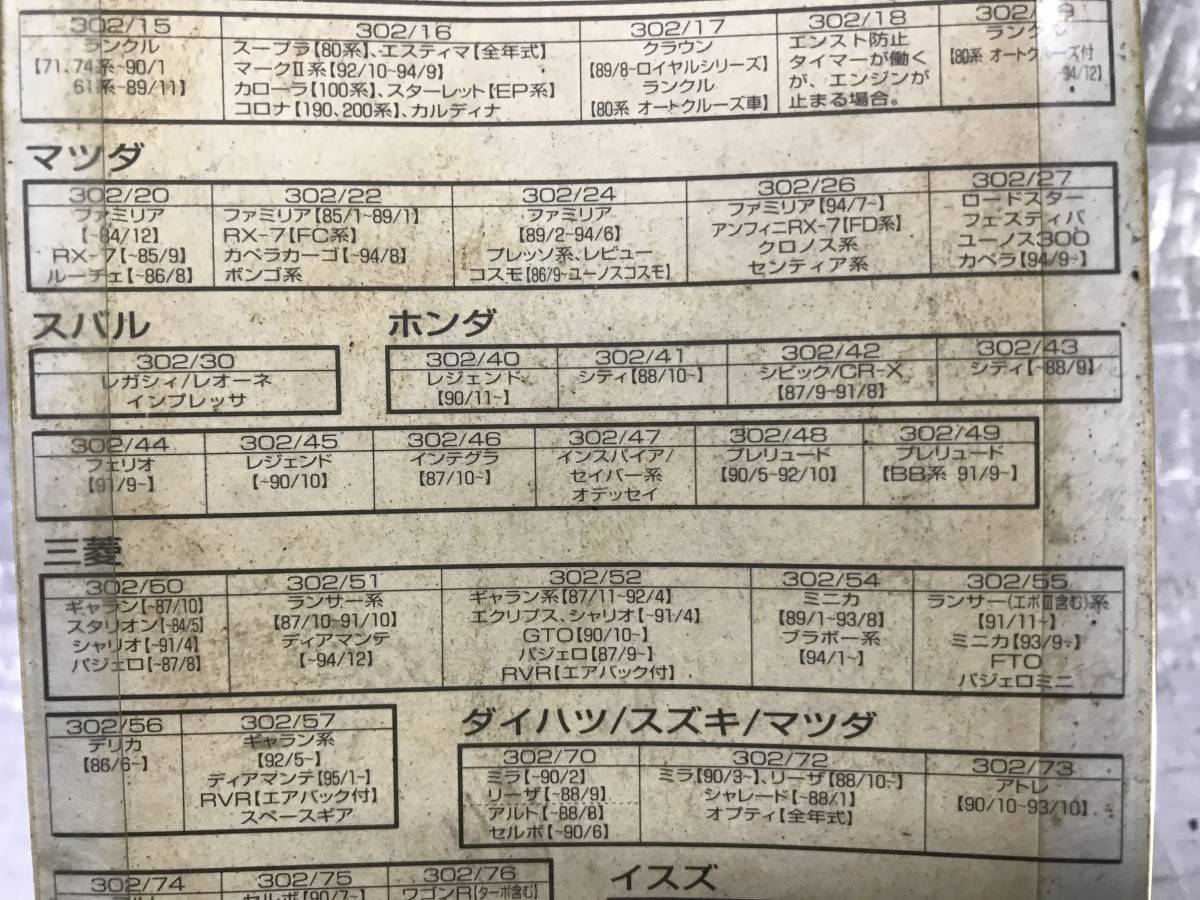 302/15
ランクル
【71、74系~90/1
61系~89/11】
302/16
スープラ【80系】、エスティマ【全年式】
マークⅡ系【92/10~94/9】
カローラ【100系】、スターレット【EP系】
コロナ【190、200系】、カルディナ
302/17
クラウン
【89/8~ロイヤルシリーズ】
ランクル
【80系 オートクルーズ車】
302/18
エンスト防止
タイマーが働く
が、エンジンが
止まる場合。
ランクル
【80系 オートクルーズ付
94/12】
マツダ
302/20
ファミリア
【~84/12】
RX-7【~85/9】
ルーチェ【~86/8】
302/22
ファミリア【85/1~89/1】
RX-7【FC系】
カペラカーゴ【~94/8】
ボンゴ系
302/24
ファミリア
【89/2~94/6】
プレッソ系、レビュー
コスモ【86/9~ユーノスコスモ】
302/26
ファミリア【94/7~】
アンフィニRX-7【FD系】
クロノス系
センティア系
302/27
ロードスター
フェスティバ
ユーノス300
カペラ【94/9~】
スバル
302/30
レガシィ/レオーネ
インプレッサ
ホンダ
302/40
レジェンド
【90/11~】
302/41
シティ【88/10~】
302/42
シビック/CR-X
【87/9~91/8】
302/43
シティ【~88/9】
302/44
フェリオ
【91/9~】
302/45
レジェンド
【~90/10】
302/46
インテグラ
【87/10~】
302/47
インスパイア/
セイバー系
オデッセイ
302/48
プレリュード
【90/5~92/10】
302/49
プレリュード
【BB系 91/9~】
三菱
302/50
ギャラン【~87/10】
スタリオン【~84/5】
シャリオ【~91/4】
パジェロ【~87/8】
302/51
ランサー系
【87/10~91/10】
ディアマンテ
【~94/12】
302/52
ギャラン系【87/11~92/4】
エクリプス、シャリオ【~91/4】
GTO【90/10~】
パジェロ【87/9~】
RVR【エアバック付】
302/54
ミニカ
【89/1~93/8】
ブラボー系
【94/1~】
302/55
ランサー(エボⅢ含む)系
【91/11~】
ミニカ【93/9~】
FTO
パジェロミニ
302/56
デリカ
【86/6~】
302/57
ギャラン系
【92/5~】
ディアマンテ【95/1~】
RVR【エアバック付】
スペースギア
ダイハツ/スズキ/マツダ
302/70
ミラ【~90/2】
リーザ【~88/9】
アルト【~88/8】
セルボ【~90/6】
302/72
ミラ【90/3~】、リーザ【88/10~】
シャレード【~88/1】
オプティ【全年式】
302/73
アトレ
【90/10~93/10】
302/74
302/75
セルボ【90/7~】
302/76
ワゴンR【ターボ含む】
イスズ